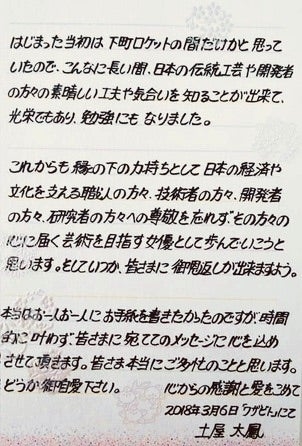 はじまった当初は下町ロケットの間だけかと思って
いたので、こんなに長い間、日本の伝統工芸や開発者
の方々の素晴しい工夫や気合いを知ることが出来て、
光栄でもあり、勉強にもなりました。
これからも縁の下の力持ちとして日本の経済や
文化を支える職人の方々、技術者の方々、開発者
の方々、研究者の方々への尊敬を忘れずその方々の
心に届く芸術を目指す女優として歩んでいこうと
思います。そしていつか、皆さまに御恩返しが出来ますよう。
本当はお一人お一人にお手紙を書きたかったのですが、時間
的に叶わず、皆さまに宛ててのメッセージに心を込め
させて頂きます。皆さま本当にご多忙のことと思います。
どうか御自愛下さい。 心からの感謝と愛をこめて
2018年3月6日「ワガビト」にて
土屋 太鳳